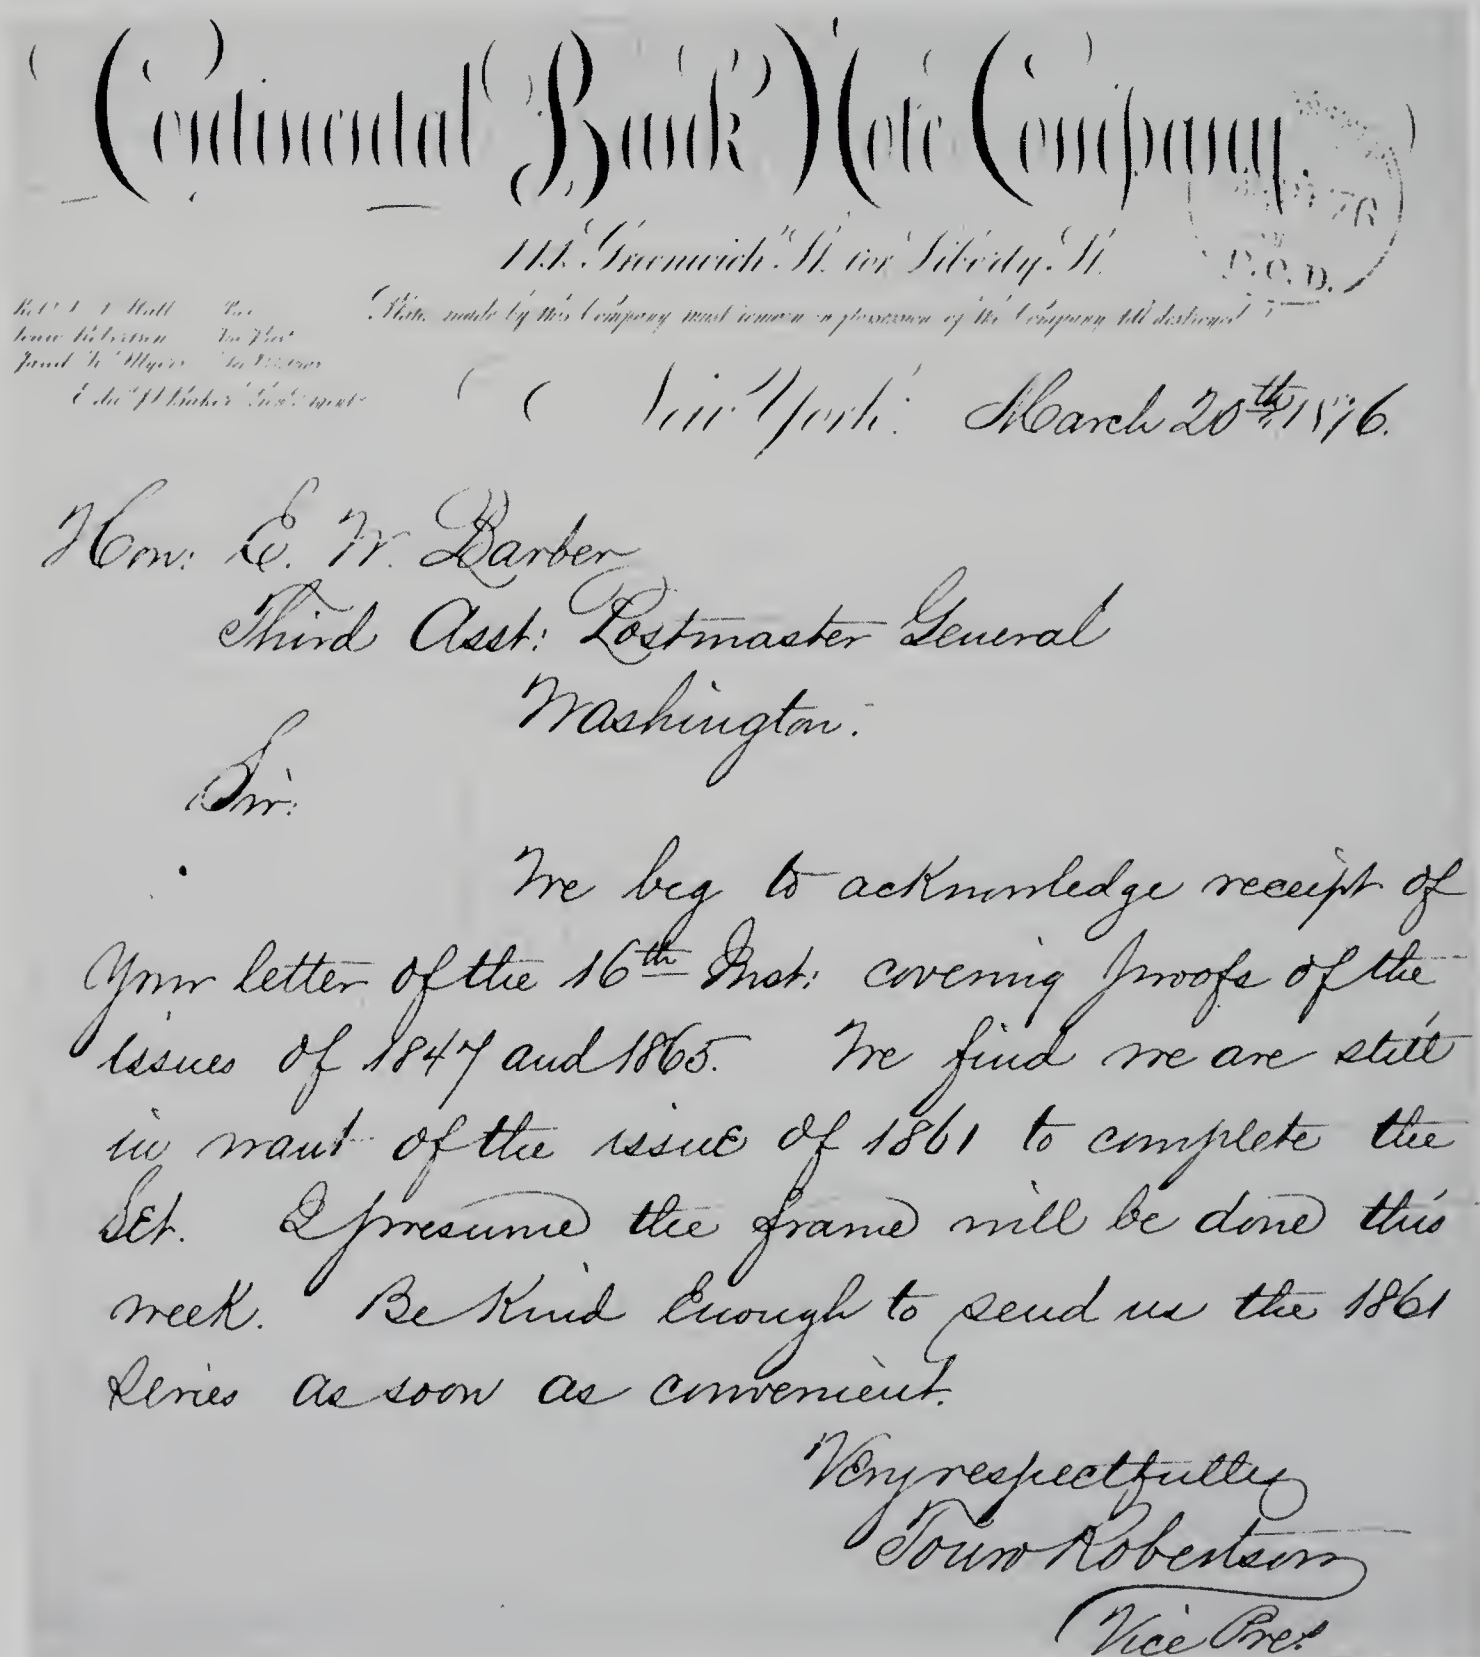 Continental Bank Note Company,
Greenwich St. cor Liberty St.
Plates made by this Company must remain in possession of the Company till destroyed
Touro Robertson
New York, March 20th, 1876.
Hon: E. W. Barber
Third Asst: Postmaster General
Washington.
Sir:
We beg to acknowledge receipt of
your letter of the 16th Inst: covering proofs of the
issues of 1847 and 1865. We find we are still
in want of the issue of 1861 to complete the
Set. I presume the frame will be done this
week. Be Kind Enough to send us the 1861
Series as soon as convenient.
Very respectfully
Touro Robertson
Vice Pres